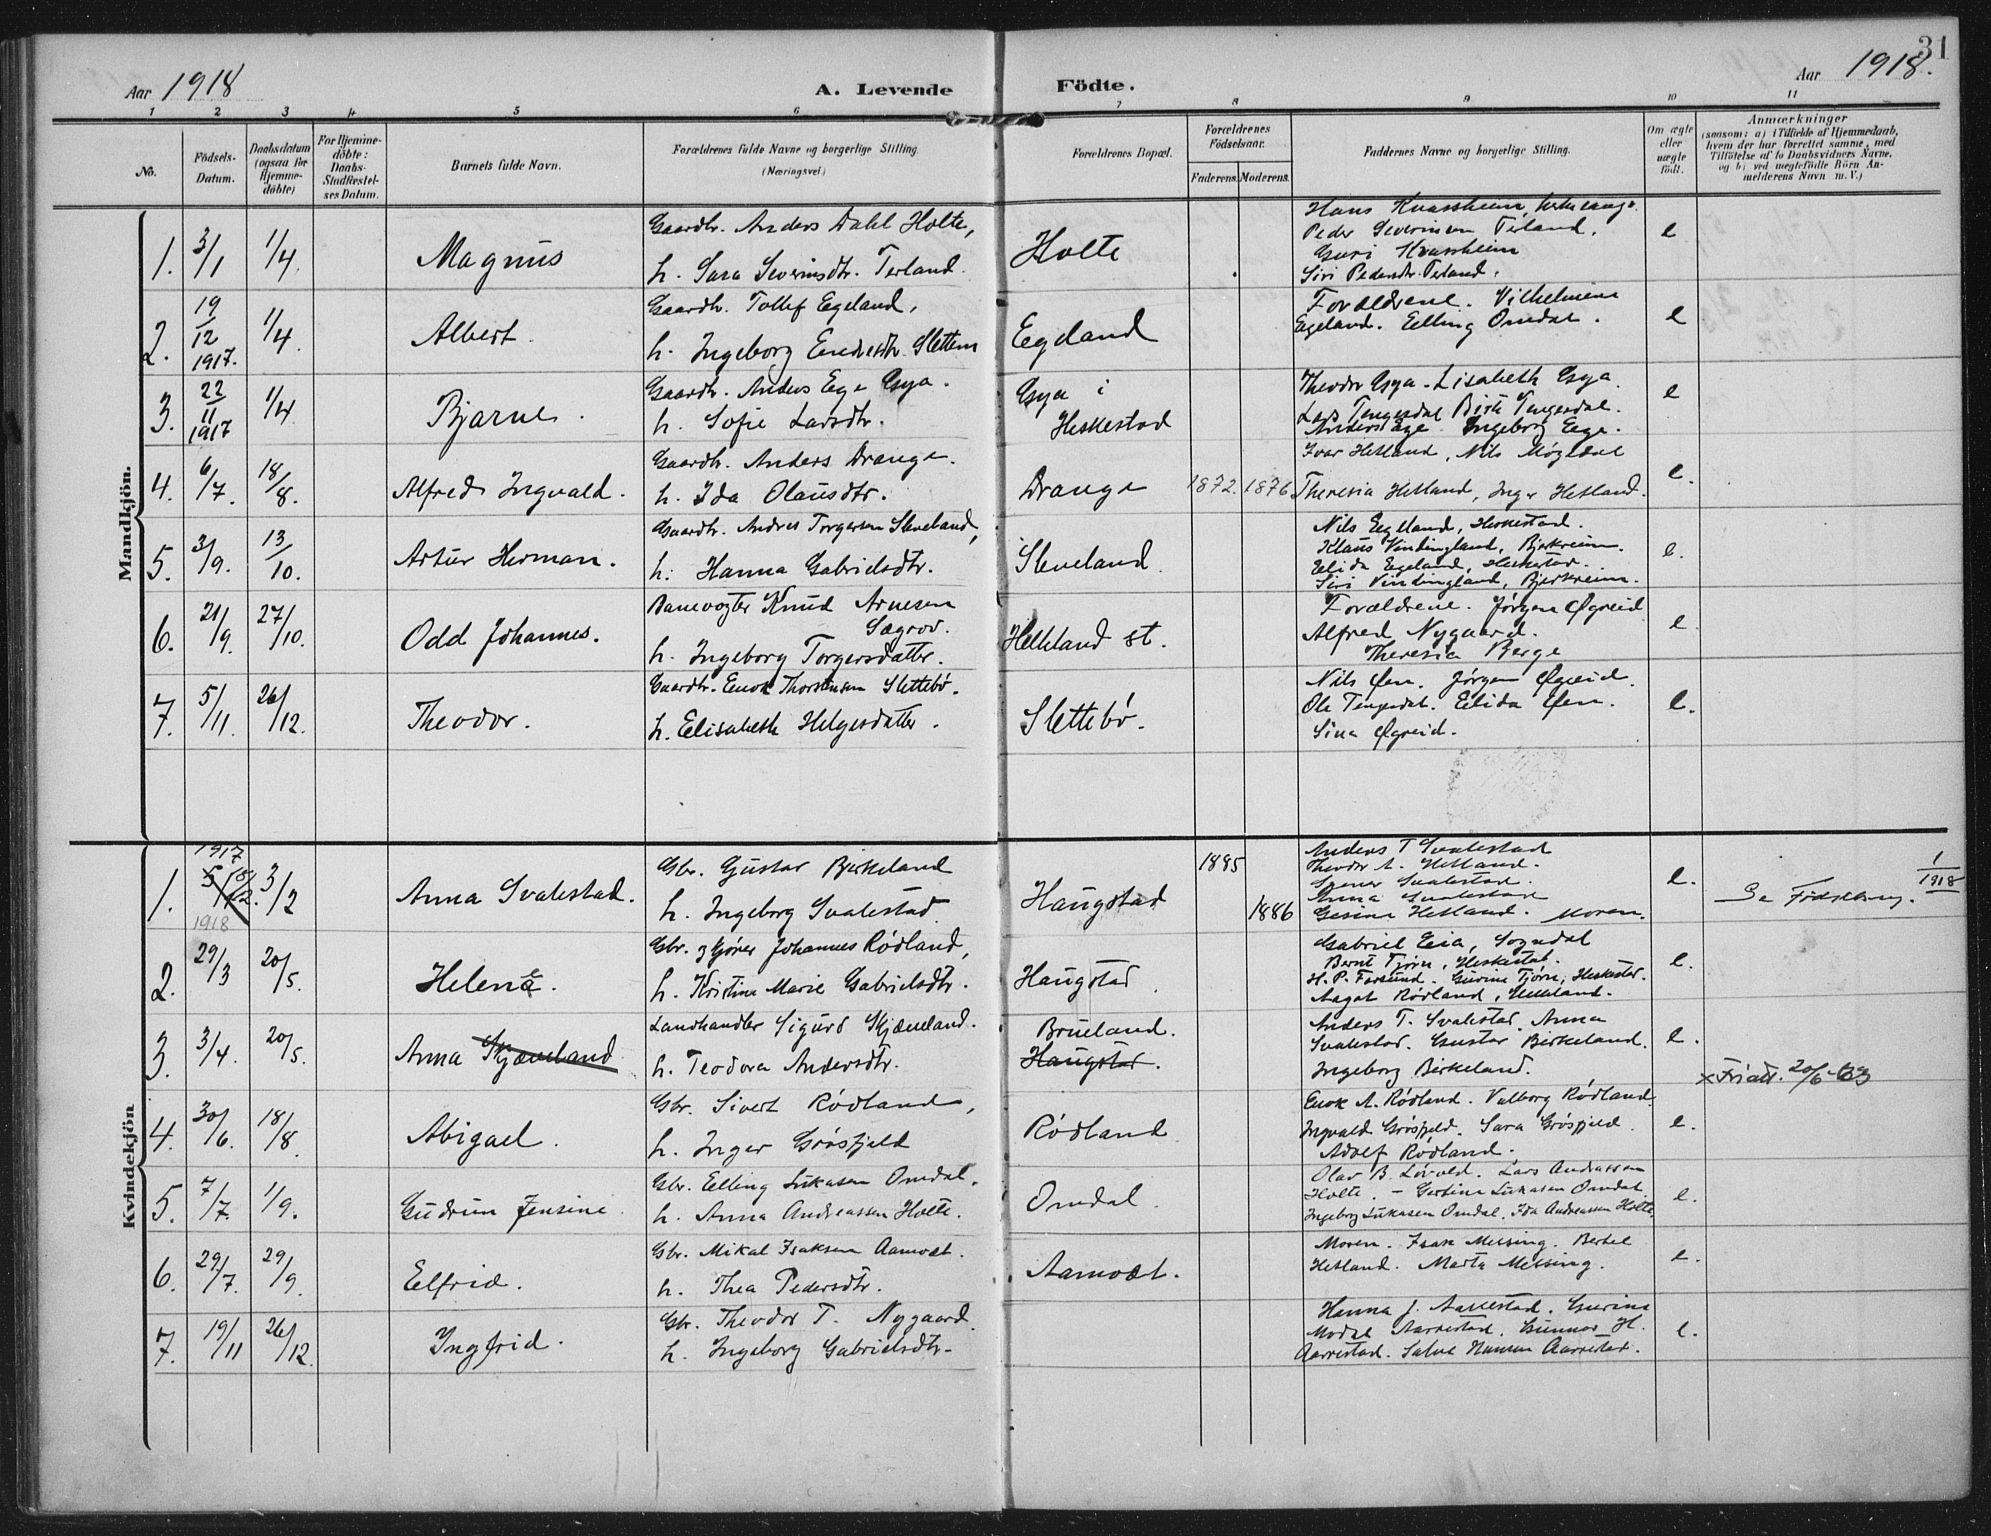 31
Aar 1918 A. Levende Födte. Aar 1918.
1 2 3 4 5 6 7 8 9 10 11
No.
Födsels-
Datum.
Daabsdatum
(ogsaa for
Hjemme-
döbte)
For Hjemme-
döbte:
Daabs-
Stadfæstel-
ses Datum.
Barnets fulde Navn.
Forældrenes fulde Navne og borgerlige Stilling.
(Næringsvei)
Forældrenes Bopæl.
Forældrenes
Födselsaar.
Faderens. Moderens.
Faddernes Navne og borgerlige Stilling.
Om ægte
eller
uægte
födt.
Anmærkninger
(saasom: a) i Tilfælde af Hjemmedaab,
hvem der har forrettet samme, med
Tilföielse af to Daabsvidners Navne,
og b) ved uegtefödte Börn An-
melderens Navn m. V.)
Mandkjön.
1. 3/1 1/4 Magnus
Gaardbr. Anders Dahl Holte,
h. Sara Severinsdtr. Terland.
Holte
Hans Kvassheim,
Peder Severinsen Terland.
Guri Kvassheim
Siri Pedersdtr. Terland.
e
2. 19/12 1917. 1/4 Albert.
Gaardbr. Tollef Egeland,
h. Ingeborg Endresdtr. Slettem
Egeland
Forældrene. Vilhelmine
Egeland. Elling Omdal.
e
3. 22/11 1917 1/4 Bjarne.
Gaardbr. Anders Ege Gya.
h. Sofie Larsdtr.
Gya i
Heskestad
Theodor Gya. Lisabeth Gya.
Lars Tengesdal Birte Tengesdal.
Anders Ege. Ingeborg Ege.
e
4. 6/7. 18/8. Alfred Ingvald.
Gaardbr. Anders Drange.
h. Ida Olausdtr.
Drange 1872. 1876
Ivar Hetland, Nils Mögedal
Theresia Hetland, Inger Hetland.
e.
5. 3/9. 13/10. Artur Herman.
Gaardbr. Andres Torgersen Sleveland,
h. Hanna Gabrielsdtr.
Sleveland
Nils Egeland, Heskestad.
Klaus Vindingland, Bjerkreim.
Elida Egeland, Heskestad.
Siri Vindingland, Bjerkreim.
e.
6. 21/9. 27/10. Odd Johannes.
Banevogter Knud Arnesen
Sægrov.
h. Ingeborg Torgersdatter.
Helleland st.
Forældrene. Jørgen Øgreid
Alfred Nygaard.
Theresia Berge
e.
7. 5/11. 26/12. Theodor.
Gaardbr. Enok Thorstensen Slettebö.
h. Elisabeth Helgesdatter.
Slettebö.
Nils Øen. Jørgen Øgreid.
Ole Tengesdal. Elida Øen.
Sina Øgreid.
e.
Kvindekjön
1917
1. 5/12. 3/2 Anna Svalestad.
1918
Gbr. Gustav Birkeland
h. Ingeborg Svalestad
Haugstad
1885
1886
Anders T Svalestad
Theodor A. Hetland.
Svalestad.
Anna Svalestad
Gesine Hetland. Moren.
e.
Se Födselbry. 1/1918
2. 29/3 20/5. Helene.
Gbr. og Johannes Rödland,
h. Kristine Marie Gabrielsdtr.
Haugstad
Gabriel Eia, Sogndal
Bernt Tjörn, Heskestad.
H. P. Forsund. Gurine Tjörn, Heskestad.
Aagot Rödland, Helleland.
e.
3. 3/4. 20/5. Anna Skjæveland
Landhandler Sigurd Skjæveland.
h. Teodora Andersdtr.
Brueland.
Haugstad.
Anders T. Svalestad. Anna
Svalestad. Gustav Birkeland.
Ingeborg Birkeland.
e.
x Friatt. 20/6-63
4. 30/6. 18/8. Abigael.
Gbr. Sivert Rödland,
h. Inger Grösfjeld
Rödland
Enok A. Rödland. Valborg Rödland.
Ingvald Grösfjeld. Sara Grösfjeld.
Adolf Rödland.
e.
5. 7/7. 1/9. Gudrun Jensine
Gbr. Elling Lukasen Omdal,
h. Anna Andreassen Holte.
Omdal.
Olav B. Lövold. Lars Andreassen
Holte. - Gertine Lukasen Omdal
Ingeborg Lukasen Omdal. Ida Andreassen Holte.
e.
6. 29/7. 29/9. Elfrid.
Gbr. Mikal Isaksen Aamodt.
h. Thea Pedersdtr.
Aamodt.
Moren. Isak Messing. Bertel
Hetland. Marta Messing.
e.
7. 19/11 26/12. Ingfrid.
Gbr. Theodor T. Nygaard
h. Ingeborg Gabrielsdtr.
Hanna J. Aarrestad. Gurine
Aarrestad. Gunnar H.
Aarrestad. Salve Hansen Aarrestad.
e.